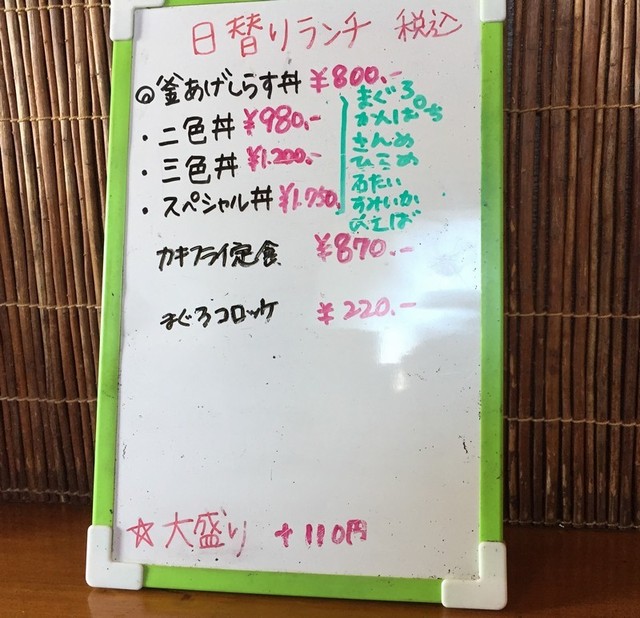 日替りランチ 税込
◎釜あげしらす丼 ¥800.-
・二色丼 ¥980.-
・三色丼 ¥1.200.-
・スペシャル丼 ¥1.750.
まぐろ
かんぱち
さんめ
ひらめ
まだい
すみいか
カキフライ定食 ¥870.-
まぐろコロッケ ¥220.-
☆大盛り +110円